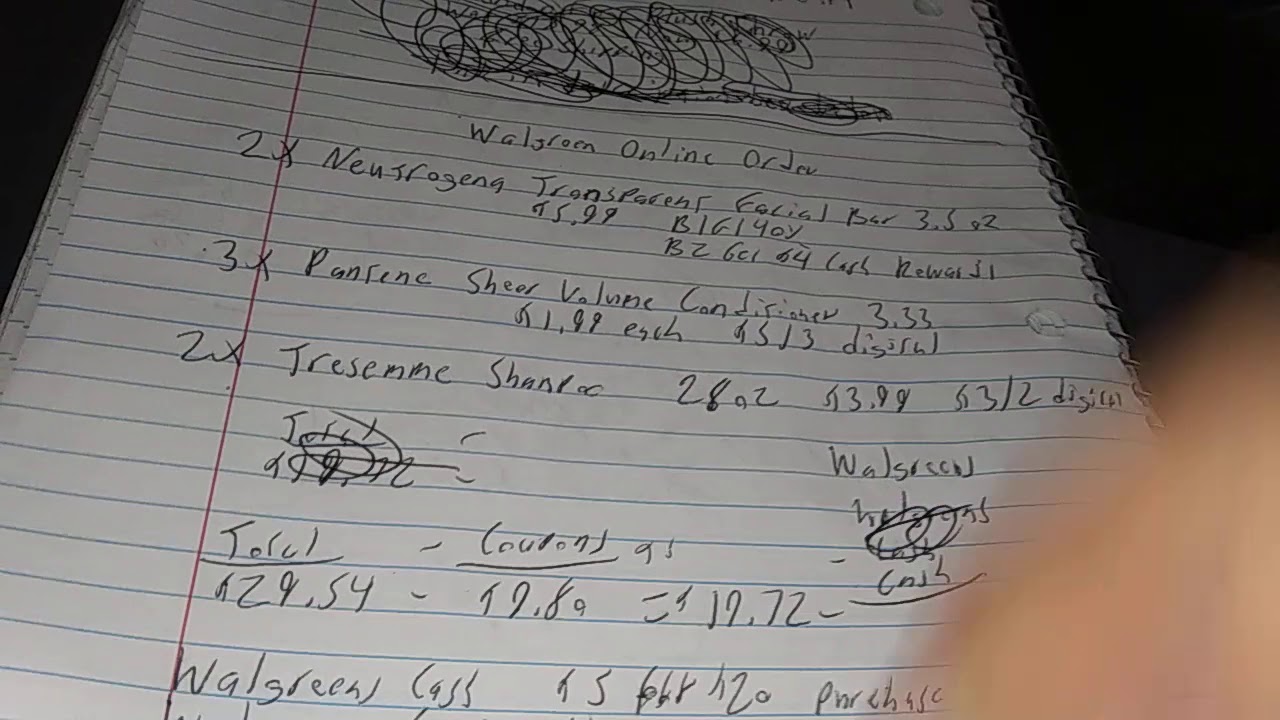 Walgreen Online Order
2x Neutrogena Transparent Facial Bar 3.5 oz
$5.99 B1G1 40%
B2 Get $4 Cash Rewards
3x Pantene Sheer Volume Conditioner 3.33
$1.99 each $5/3 digital
2x Tresemme Shampoo 28oz $3.99 $3/2 digital
Total =
Walgreens
Total - Coupons -
Cash
$29.54 - $9.80 = $19.72 -
Walgreens Cash $5 $20 purchase